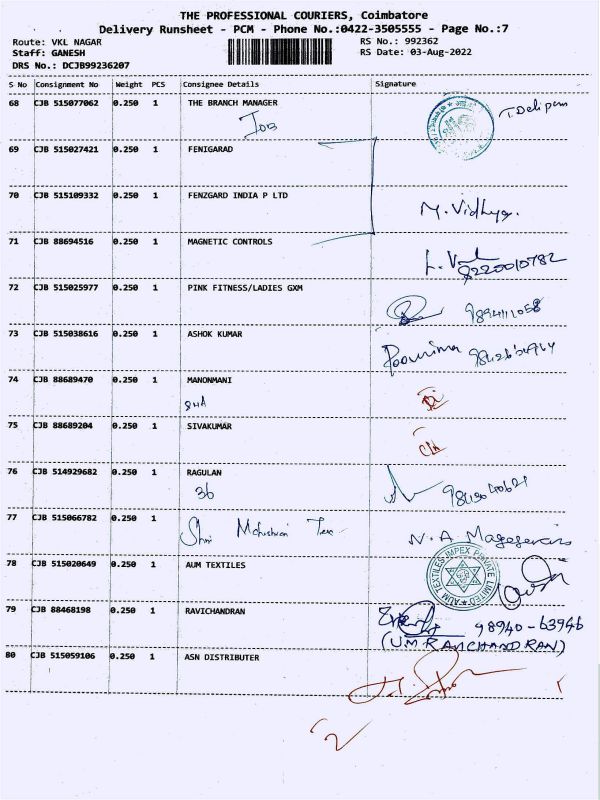 THE PROFESSIONAL COURIERS, Coimbatore
Delivery Runsheet - PCM - Phone No.:0422-3505555 - Page No.:7
Route: VKL NAGAR RS No.: 992362
Staff: GANESH RS Date: 03-Aug-2022
DRS No.: DCJB99236207
S No Consignment No Weight PCS Consignee Details Signature
68 CJB 515077062 0.250 1 THE BRANCH MANAGER
IOB
69 CJB 515027421 0.250 1 FENIGARAD
70 CJB 515109332 0.250 1 FENZGARD INDIA P LTD
M. Vidhya.
71 CJB 88694516 0.250 1 MAGNETIC CONTROLS
8220010782
72 CJB 515025977 0.250 1 PINK FITNESS/LADIES GXM
9894111058
73 CJB 515038616 0.250 1 ASHOK KUMAR
Poornima
74 CJB 88689470 0.250 1 MANONMANI
75 CJB 88689204 0.250 1 SIVAKUMAR
76 CJB 514929682 0.250 1 RAGULAN
36
77 CJB 515066782 0.250 1 Shri
N. A
78 CJB 515020649 0.250 1 AUM TEXTILES
AUM TEXTILES IMPEX PRIVATE LIMITED
79 CJB 88468198 0.250 1 RAVICHANDRAN
98940-63946
(UMRANCHANDRAN)
80 CJB 515059106 0.250 1 ASN DISTRIBUTER